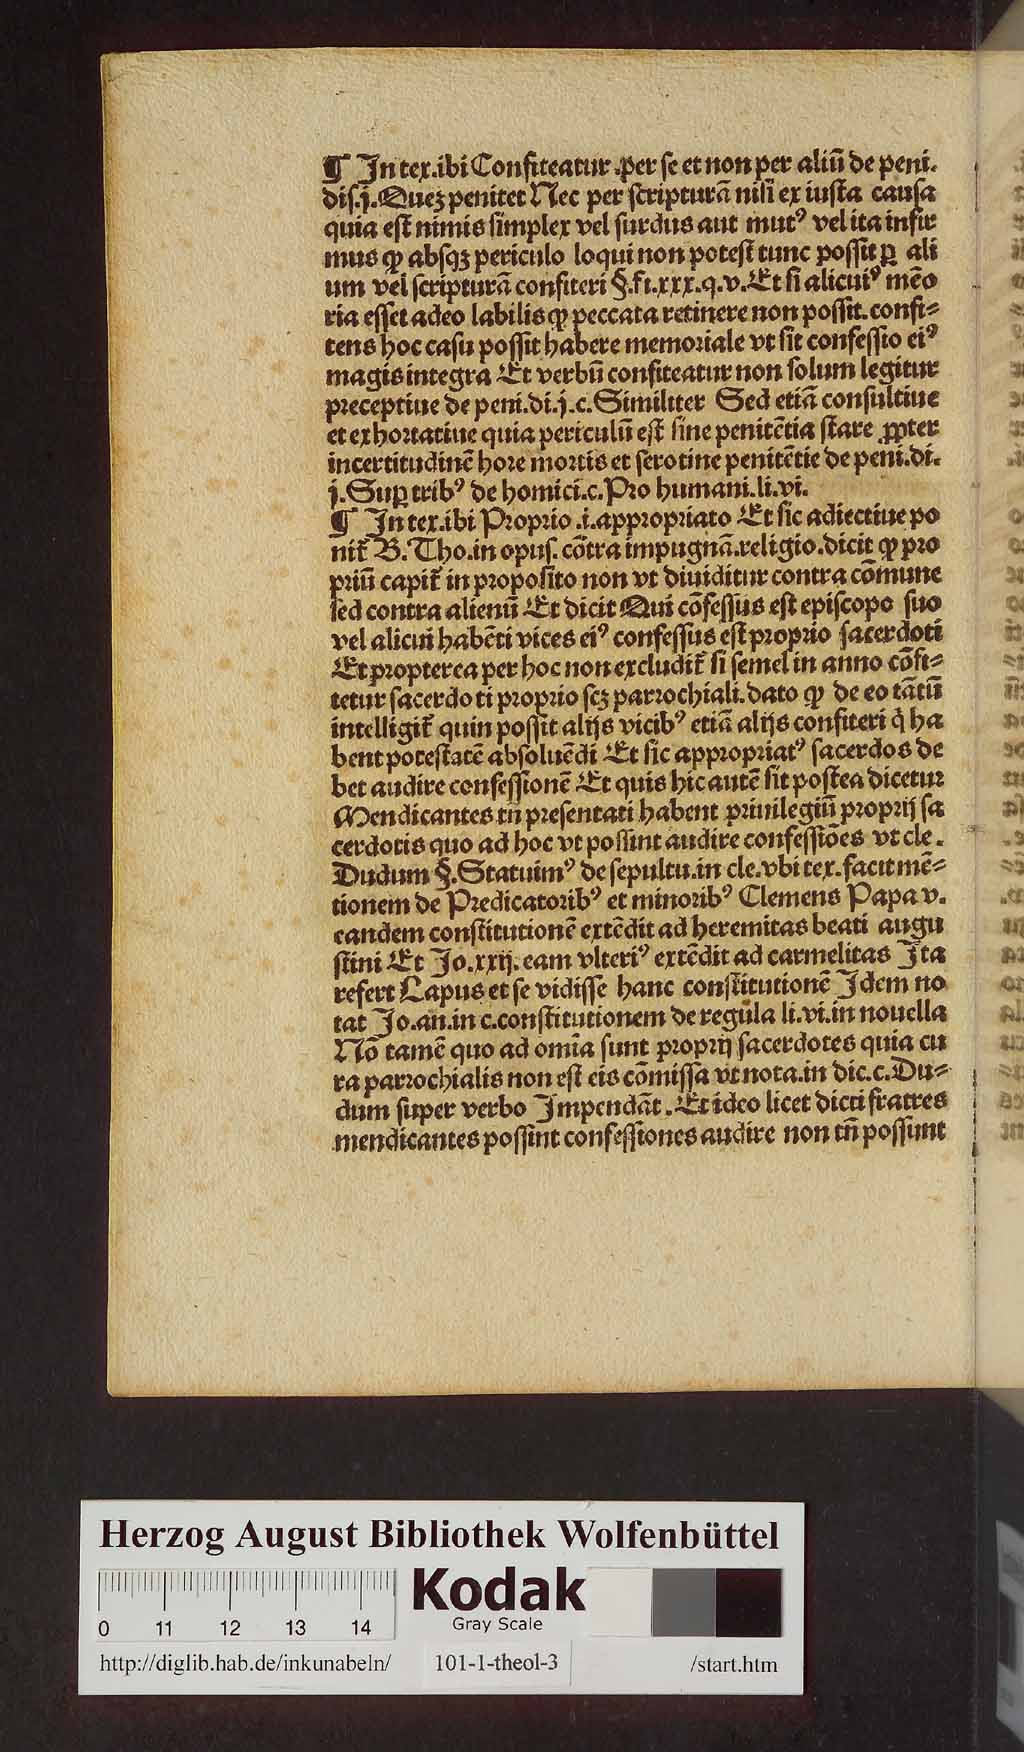 ¶ In tex.ibi Confiteatur .per se et non per aliū de peni.
dis.j.Quez penitet Nec per scripturā nisi ex iusta causa
quia est nimis simplex vel surdus aut mutꝰ vel ita infir
mus ꝙ absqz periculo loqui non potest tunc possit ꝑ ali
um vel scripturā confiteri §.fi.xxx.q.v.Et si alicuiꝰ mēo
ria esset adeo labilis ꝙ peccata retinere non possit.confi⸗
tens hoc casu possit habere memoriale vt sit confessio eiꝰ
magis integra Et verbū confiteatur non solum legitur
preceptiue de peni.di.j.c.Similiter Sed etiā consultiue
et exhortatiue quia periculū est sine penitētia stare ꝓpter
incertitudinē hore mortis et serotine penitētie de peni.di.
j.Suꝑ tribꝰ de homici.c.Pro humani.li.vi.
¶ In tex.ibi Proprio .i.appropriato Et sic adiectiue po
nit̄ B.Tho.in opus. cōtra impugnā.religio.dicit ꝙ pro
priū capit̄ in proposito non vt diuiditur contra cōmune
sed contra alienū Et dicit Qui cōfessus est episcopo suo
vel alicui habēti vices eiꝰ confessus est proprio sacerdoti
Et propterea per hoc non excludit̄ si semel in anno cōfi⸗
tetur sacerdoti proprio scz parrochiali.dato ꝙ de eo tātū
intelligit̄ quin possit alijs vicibꝰ etiā alijs confiteri q̄ ha
bent potestatē absoluēdi Et sic appropriatꝰ sacerdos de
bet audire confessionē Et quis hic autē sit postea dicetur
Mendicantes tn̄ presentati habent priuilegiū proprij sa
cerdotis quo ad hoc vt possint audire confessiōes vt cle.
Dudum §.Statuimꝰ de sepultu.in cle.vbi tex.facit mē⸗
tionem de Predicatoribꝰ et minoribꝰ Clemens Papa v.
eandem constitutionē extēdit ad heremitas beati augu
stini Et Jo.xxij.eam vlteriꝰ extēdit ad carmelitas Ita
refert Lapus et se vidisse hanc constitutionē Idem no
tat Jo.an.in c.constitutionem de regula li.vi.in nouella
Nō tamē quo ad omīa sunt proprij sacerdotes quia cu
ra parrochialis non est eis cōmissa vt nota.in dic.c.Du⸗
dum super verbo Impendāt.Et ideo licet dicti fratres
mendicantes possint confessiones audire non tn̄ possunt
Herzog August Bibliothek Wolfenbüttel
0 11 12 13 14
Kodak
Gray Scale
http://diglib.hab.de/inkunabeln/ 101-1-theol-3 /start.htm